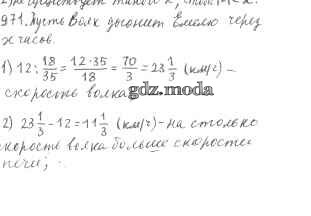 971. Пусть Волк догонит Емелю через
x часов.
1) 12 : 18/35 = 12·35/18 = 70/3 = 23 1/3 (км/ч) –
скорость волка
gdz.moda
2) 23 1/3 – 12 = 11 1/3 (км/ч) – на столько
скорость волка больше скорости
печи;